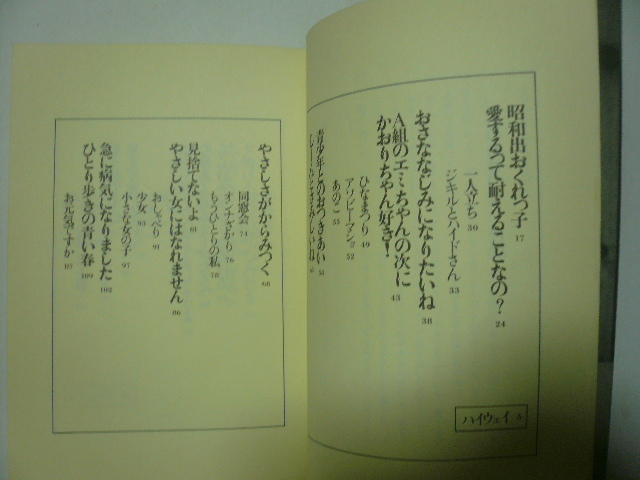 ハイウェイ 5
昭和出おくれっ子 17
愛するって耐えることなの? 24
一人立ち 30
ジキルとハイドさん 33
おさななじみになりたいね 38
A組のエミちゃんの次に
かおりちゃん好き! 43
ひなまつり 49
アソビニーマショ 52
あのこ 55
青少年とのおつきあい
やさしさがからみつく 68
同窓会 74
オンナざかり 76
もうひとりの私 78
見捨てないよ 81
やさしい女にはなれません 86
おしゃべり 91
少女 95
小さな女の子 97
急に病気になりました 102
ひとり歩きの青い春 109
お元気ですか